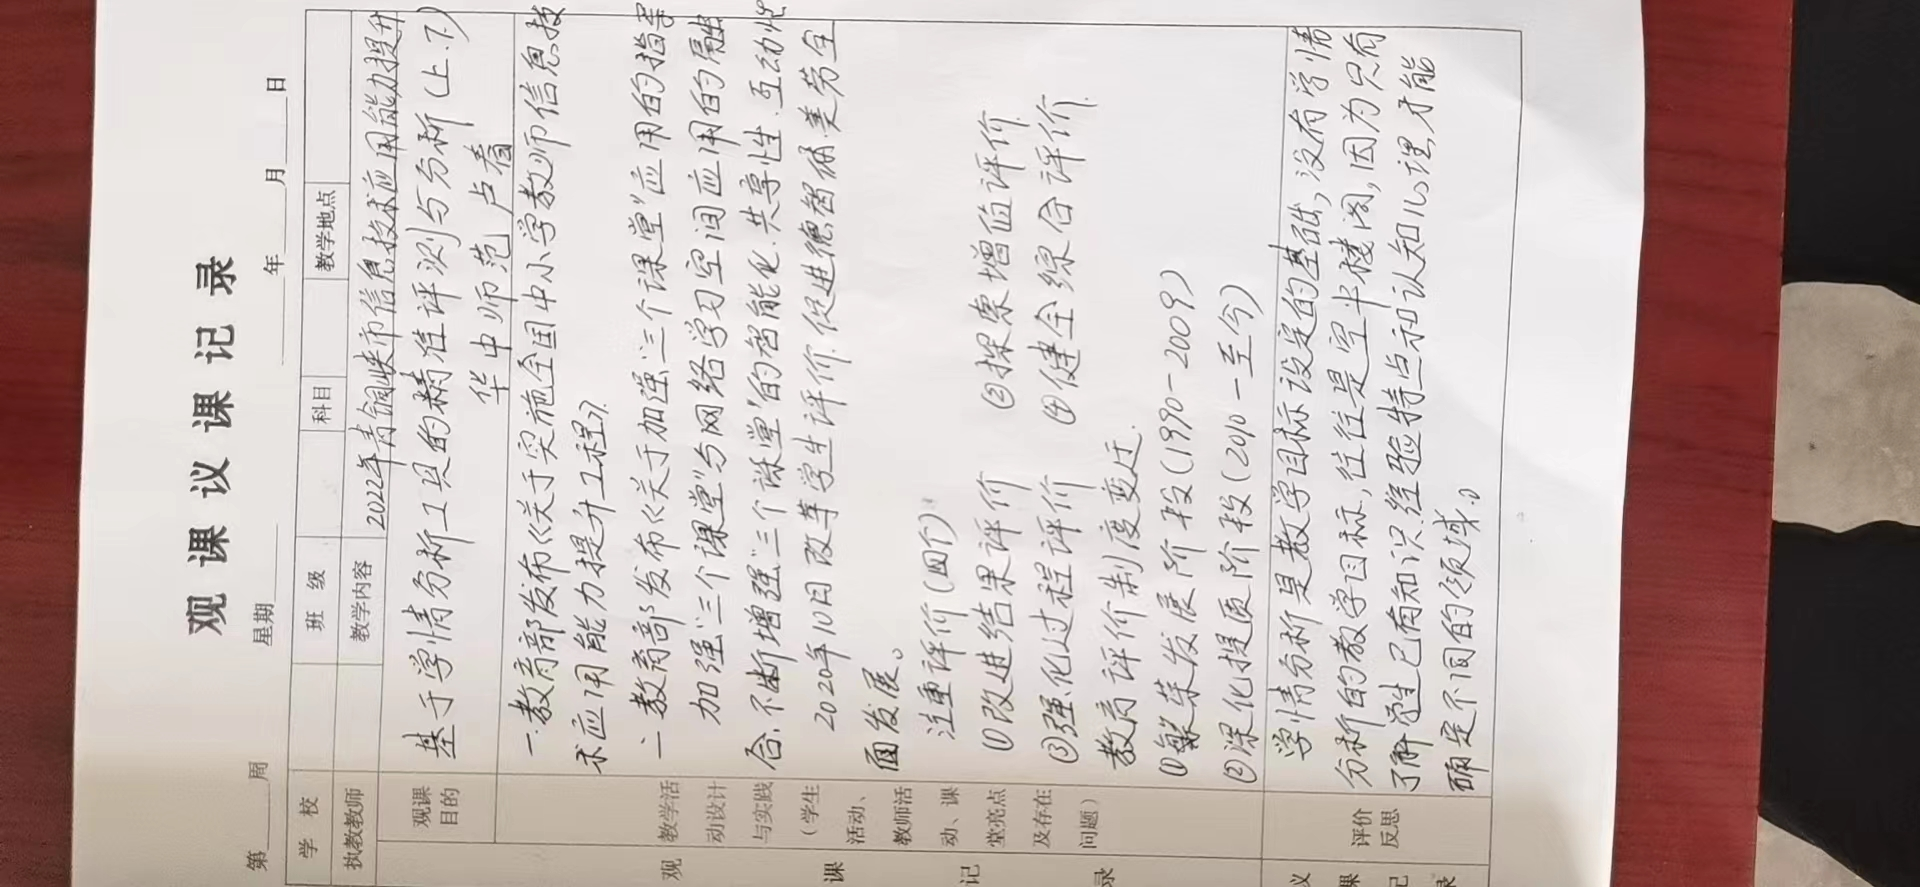 观课议课记录
第 周 星期 年 月 日
学校 班级 科目 教学地点
执教教师 教学内容 2022年青铜峡市信息技术应用能力提升
观课目的
基于学情分析工具的精准评测与分析(上.下)
华中师范 卢春
观课记录
教学活动设计与实践(学生活动、教师活动、课堂亮点及存在问题)
一.教育部发布《关于实施全国中小学教师信息技
术应用能力提升工程》.
二 教育部发布《关于加强"三个课堂"应用的指导
加强"三个课堂"与网络学习空间应用的融
合.不断增强"三个课堂"的智能化.共享性.互动性
2020年10月改革学生评价.促进德智体美劳全
面发展。
注重评价(四个)
①改进结果评价 ②探索增值评价
③强化过程评价 ④健全综合评价.
教育评价制度变迁.
①繁荣发展阶段(1990-2009)
②深化提质阶段(2010-至今)
议课记录
评价反思
学情分析是教学目标设定的基础,没有学情
分析的教学目标,往往是空中楼阁,因为只有
了解学生已有知识经验特点和认知心理才能
确定不同的领域.。